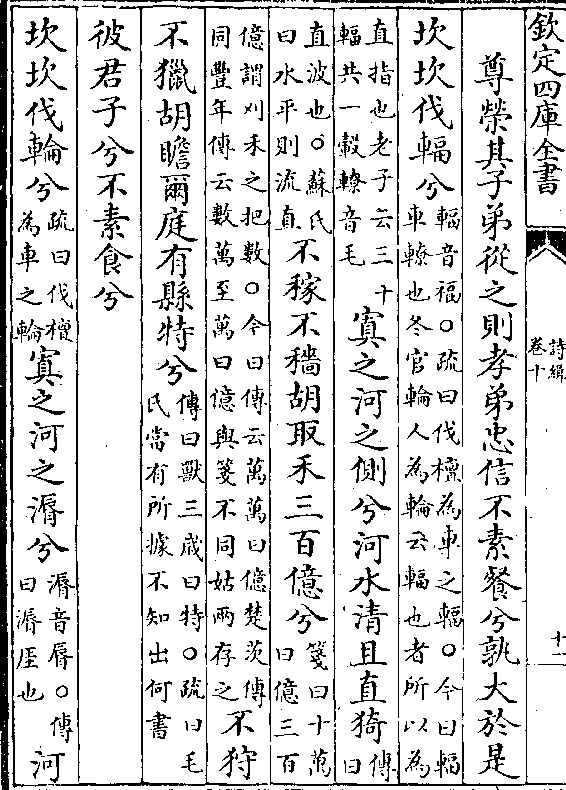 欽定四庫全書
詩緝
卷十
十一
尊榮其子弟從之則孝弟忠信不素餐兮孰大於是
坎坎伐輻兮輻音福○疏曰伐檀為車之輻○今曰輻車轑也冬官輪人為輪云輻也者所以為
直指也老子云三十輻共一轂轑音毛寘之河之側兮河水清且直猗傳曰
直波也○蘇氏曰水平則流直不稼不穡胡取禾三百億兮箋曰十萬曰億三百
億謂刈禾之把數○今曰傳云萬萬曰億楚茨傳同豐年傳云數萬至萬曰億與箋不同姑兩存之不狩
不獵胡瞻爾庭有縣特兮傳曰獸三歲曰特○疏曰毛氏當有所據不知出何書
彼君子兮不素食兮
坎坎伐輪兮疏曰伐檀為車之輪寘之河之漘兮漘音脣○傳曰漘厓也河